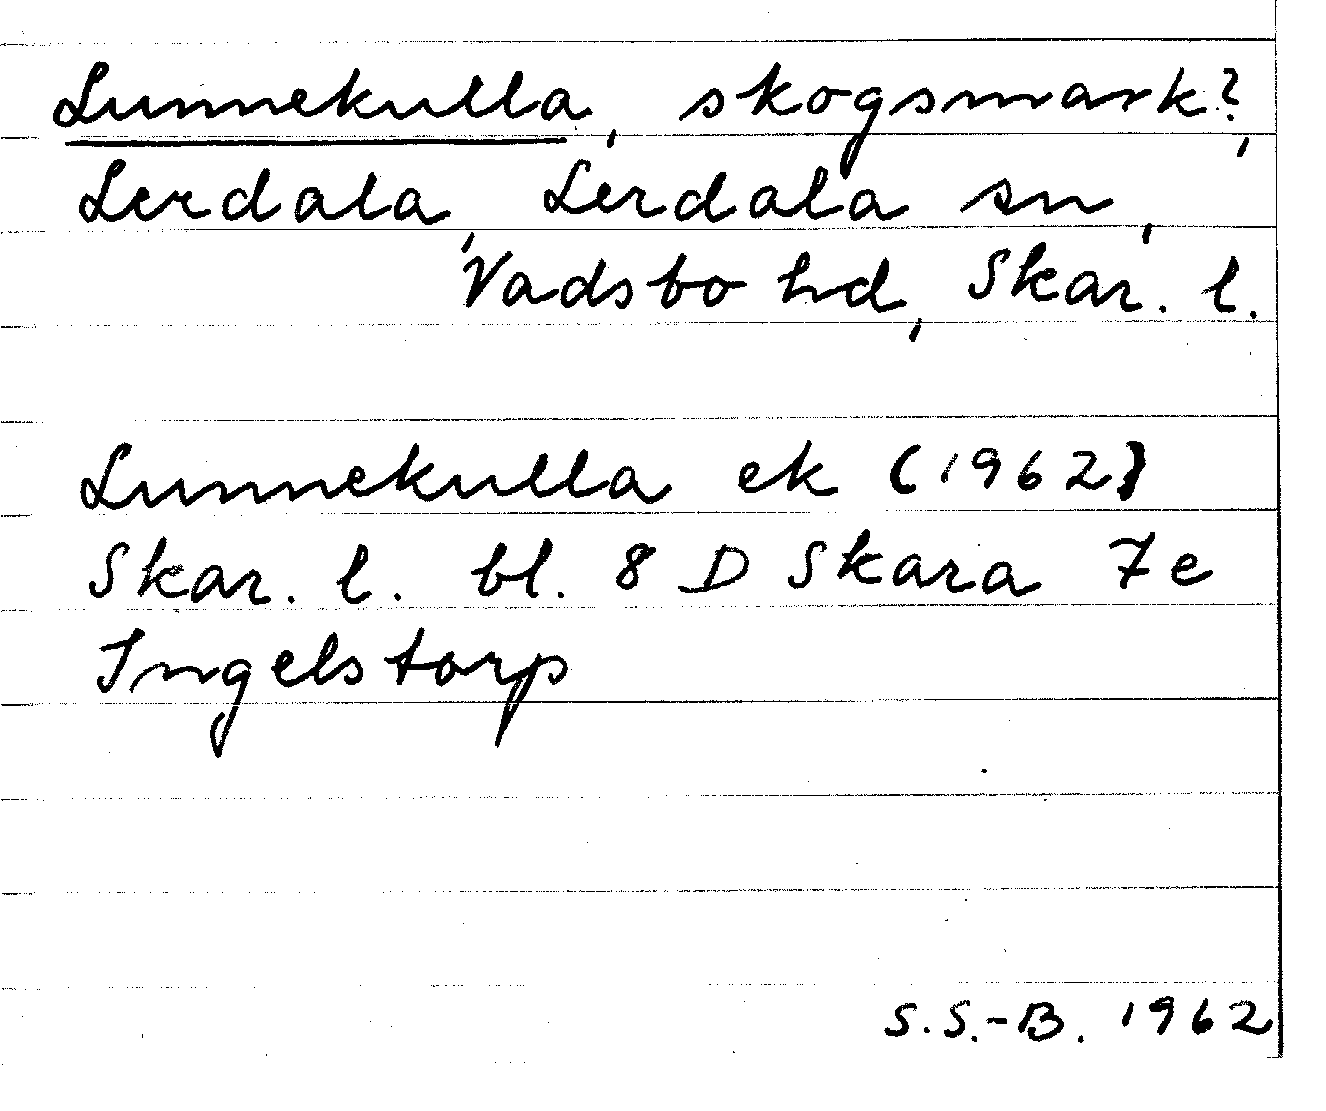 Lunnekulla, skogsmark?,
Lerdala, Lerdala sn,
Vadsbo hd, Skar. l.
Lunnekulla ek (1962)
Skar. l. bl. 8 D Skara 7e
Ingelstorp
S.S.-B. 1962